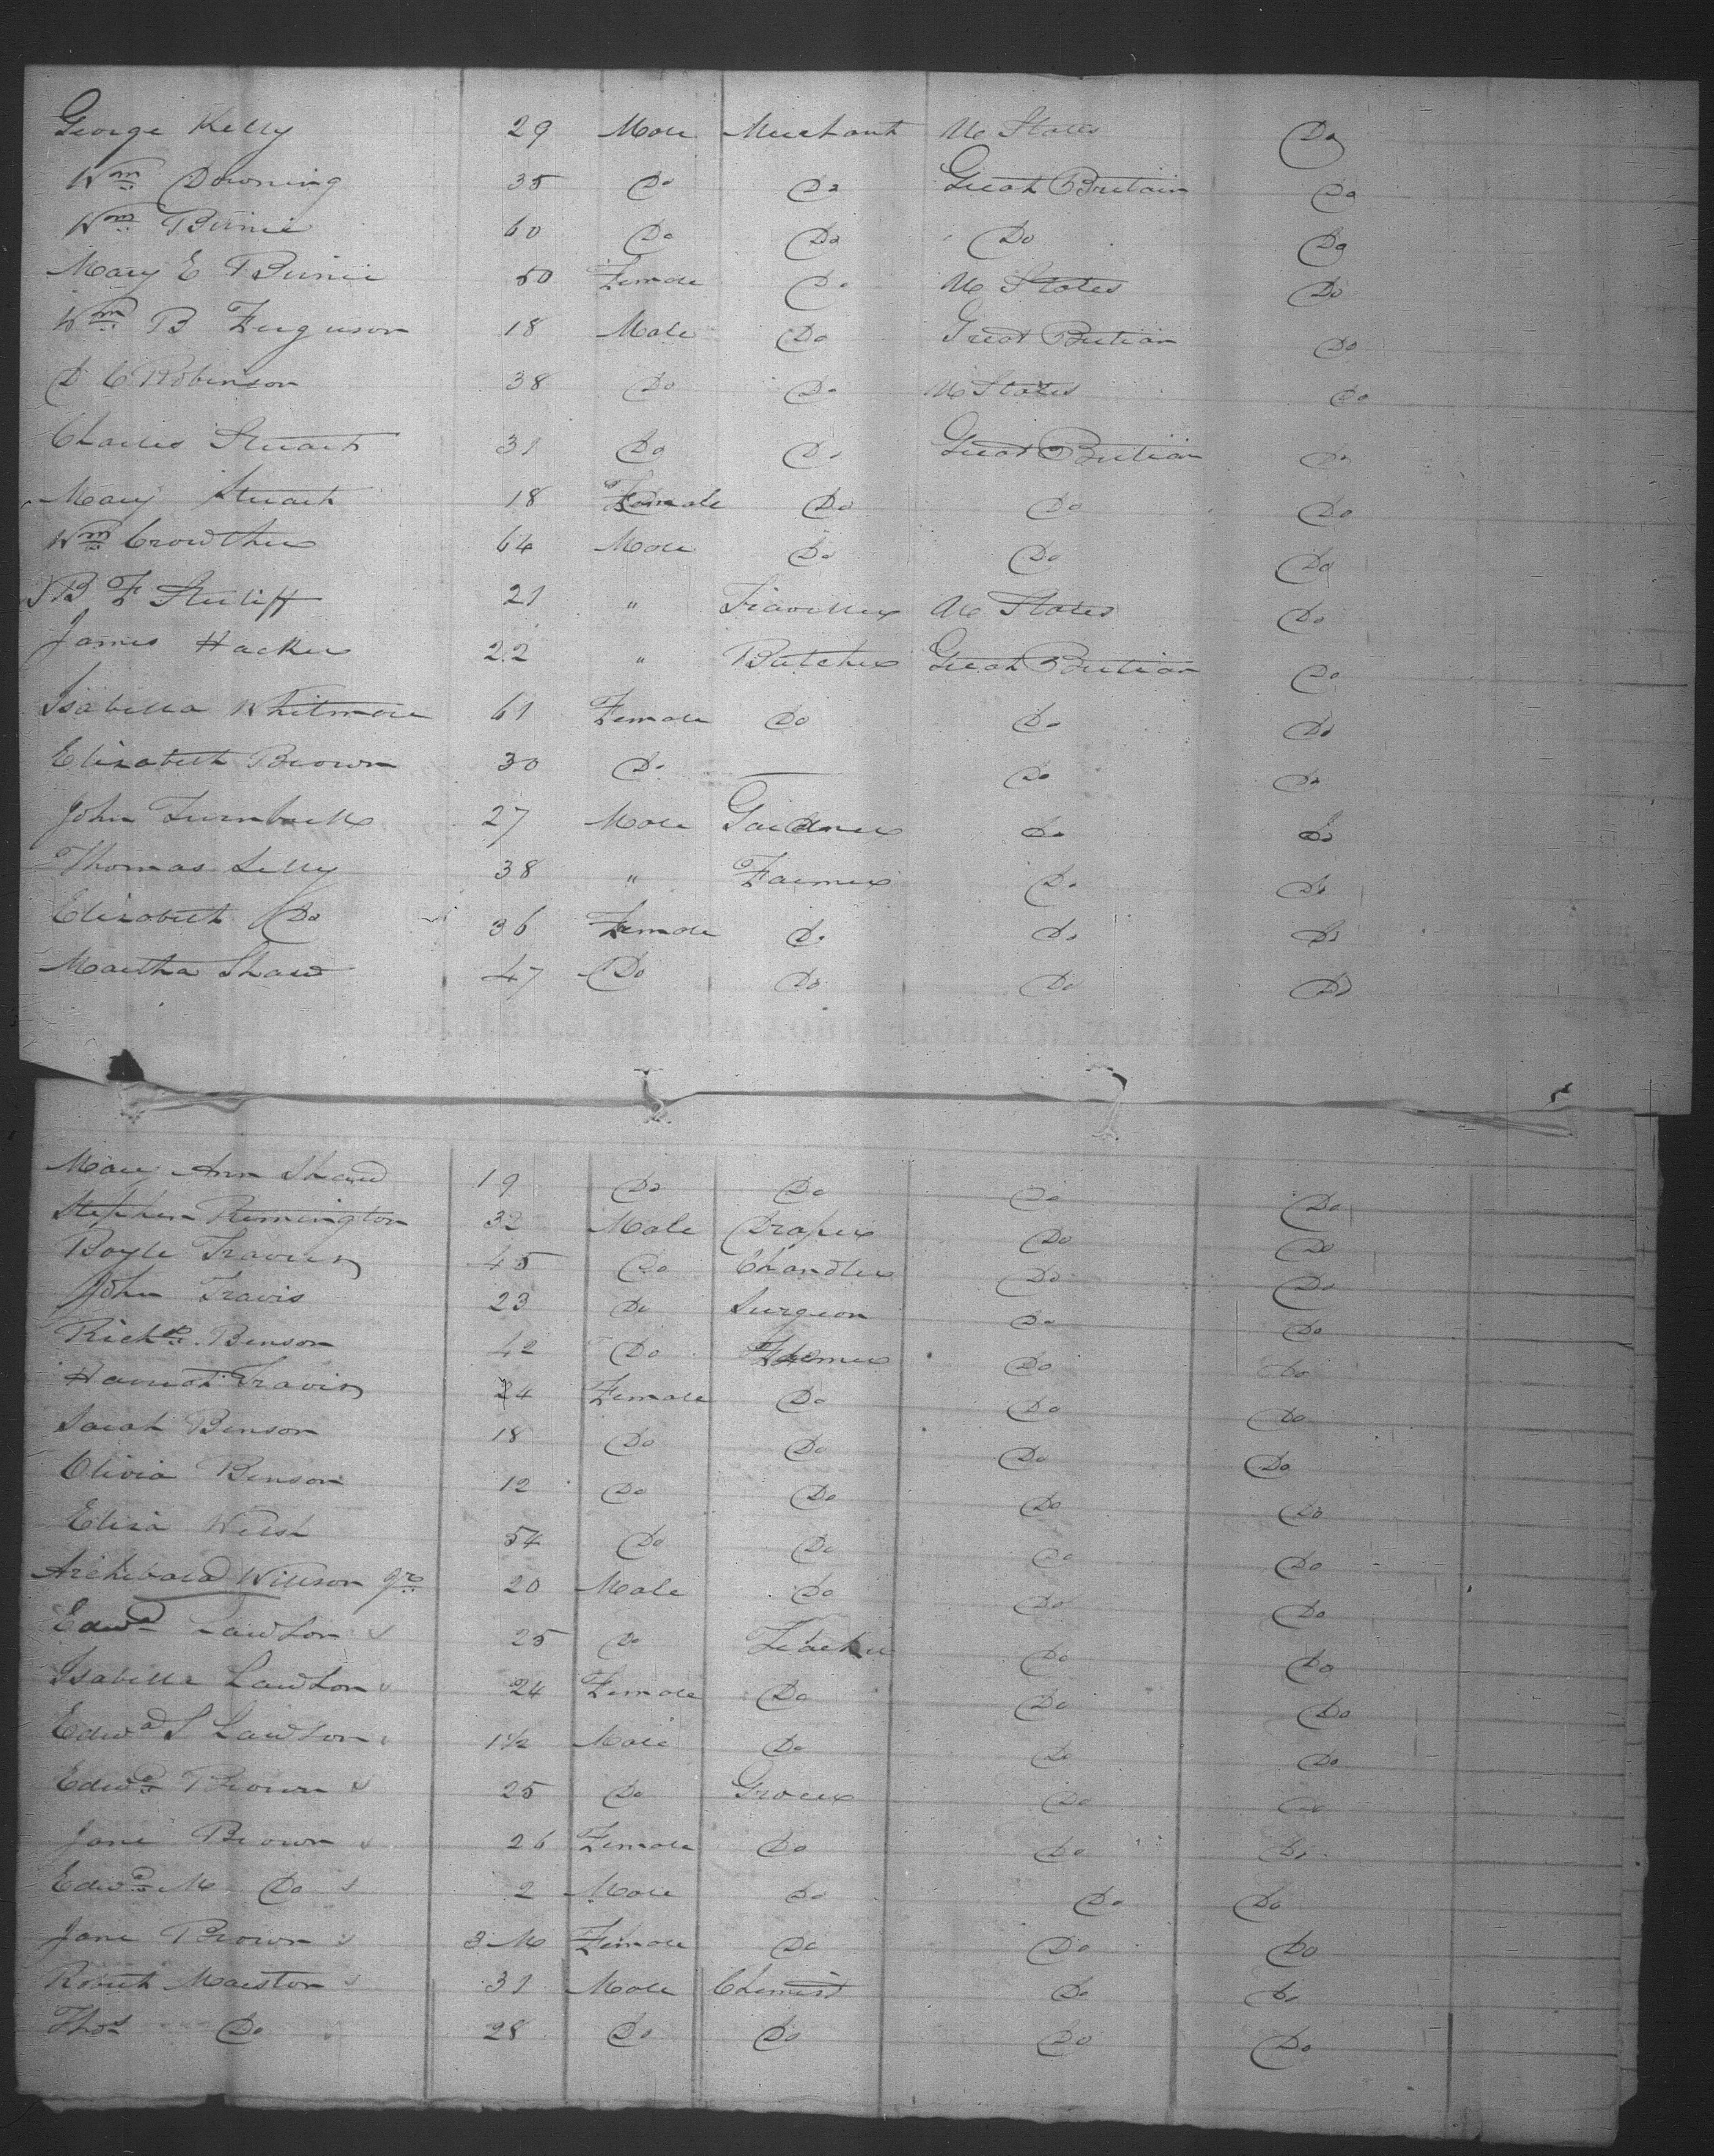 George Kelly 29 Male Merchant U States Do
Wm Downing 35 Do Do Great Britain Do
Wm Birnie 60 Do Do Do Do
Mary E Birnie 50 Female Do U States Do
Wm B Ferguson 18 Male Do Great Britian Do
D C Robinson 38 Do Do U States Do
Charles Stuart 31 Do Do Great Britian Do
Mary Stuart 18 Female Do Do Do
Wm Crowther 64 Male Do Do Do
B F 21 " Traveller U States Do
James Hacker 22 " Butcher Great Britian Do
Isabella Whitmore 61 Female Do Do Do
Elizabeth Brown 30 Do — Do Do
John Turnbull 27 Male Gardner Do Do
Thomas Lilly 38 " Farmer Do Do
Elizabeth Do 36 Female Do Do Do
Martha Shaw 47 Do Do Do Do
Mary Ann Shaw 19 Do Do Do Do
Stephen Remington 32 Male Draper Do Do
Boyle Travers 45 Do Chandler Do Do
John Travis 23 Do Surgeon Do Do
Richd. Benson 42 Do Farmer Do Do
Harriot Travis 24 Female Do Do Do
Sarah Benson 18 Do Do Do Do
Olivia Benson 12 Do Do Do Do
Eliza Welsh 54 Do Do Do Do
Archibald Willson Jr 20 Male Do Do Do
Edwd Lawton 25 Do Teacher Do Do
Isabella Lawton 24 Female Do Do Do
Edwd S Lawton 1½ Male Do Do Do
Edwd Brown 25 Do Grocer Do Do
Jane Brown 26 Female Do Do Do
Edwd M Do 2 Male Do Do Do
Jane Brown 3 M Female Do Do Do
Robert Marston 31 Male Chemist Do Do
Thos Do 28 Do Do Do Do